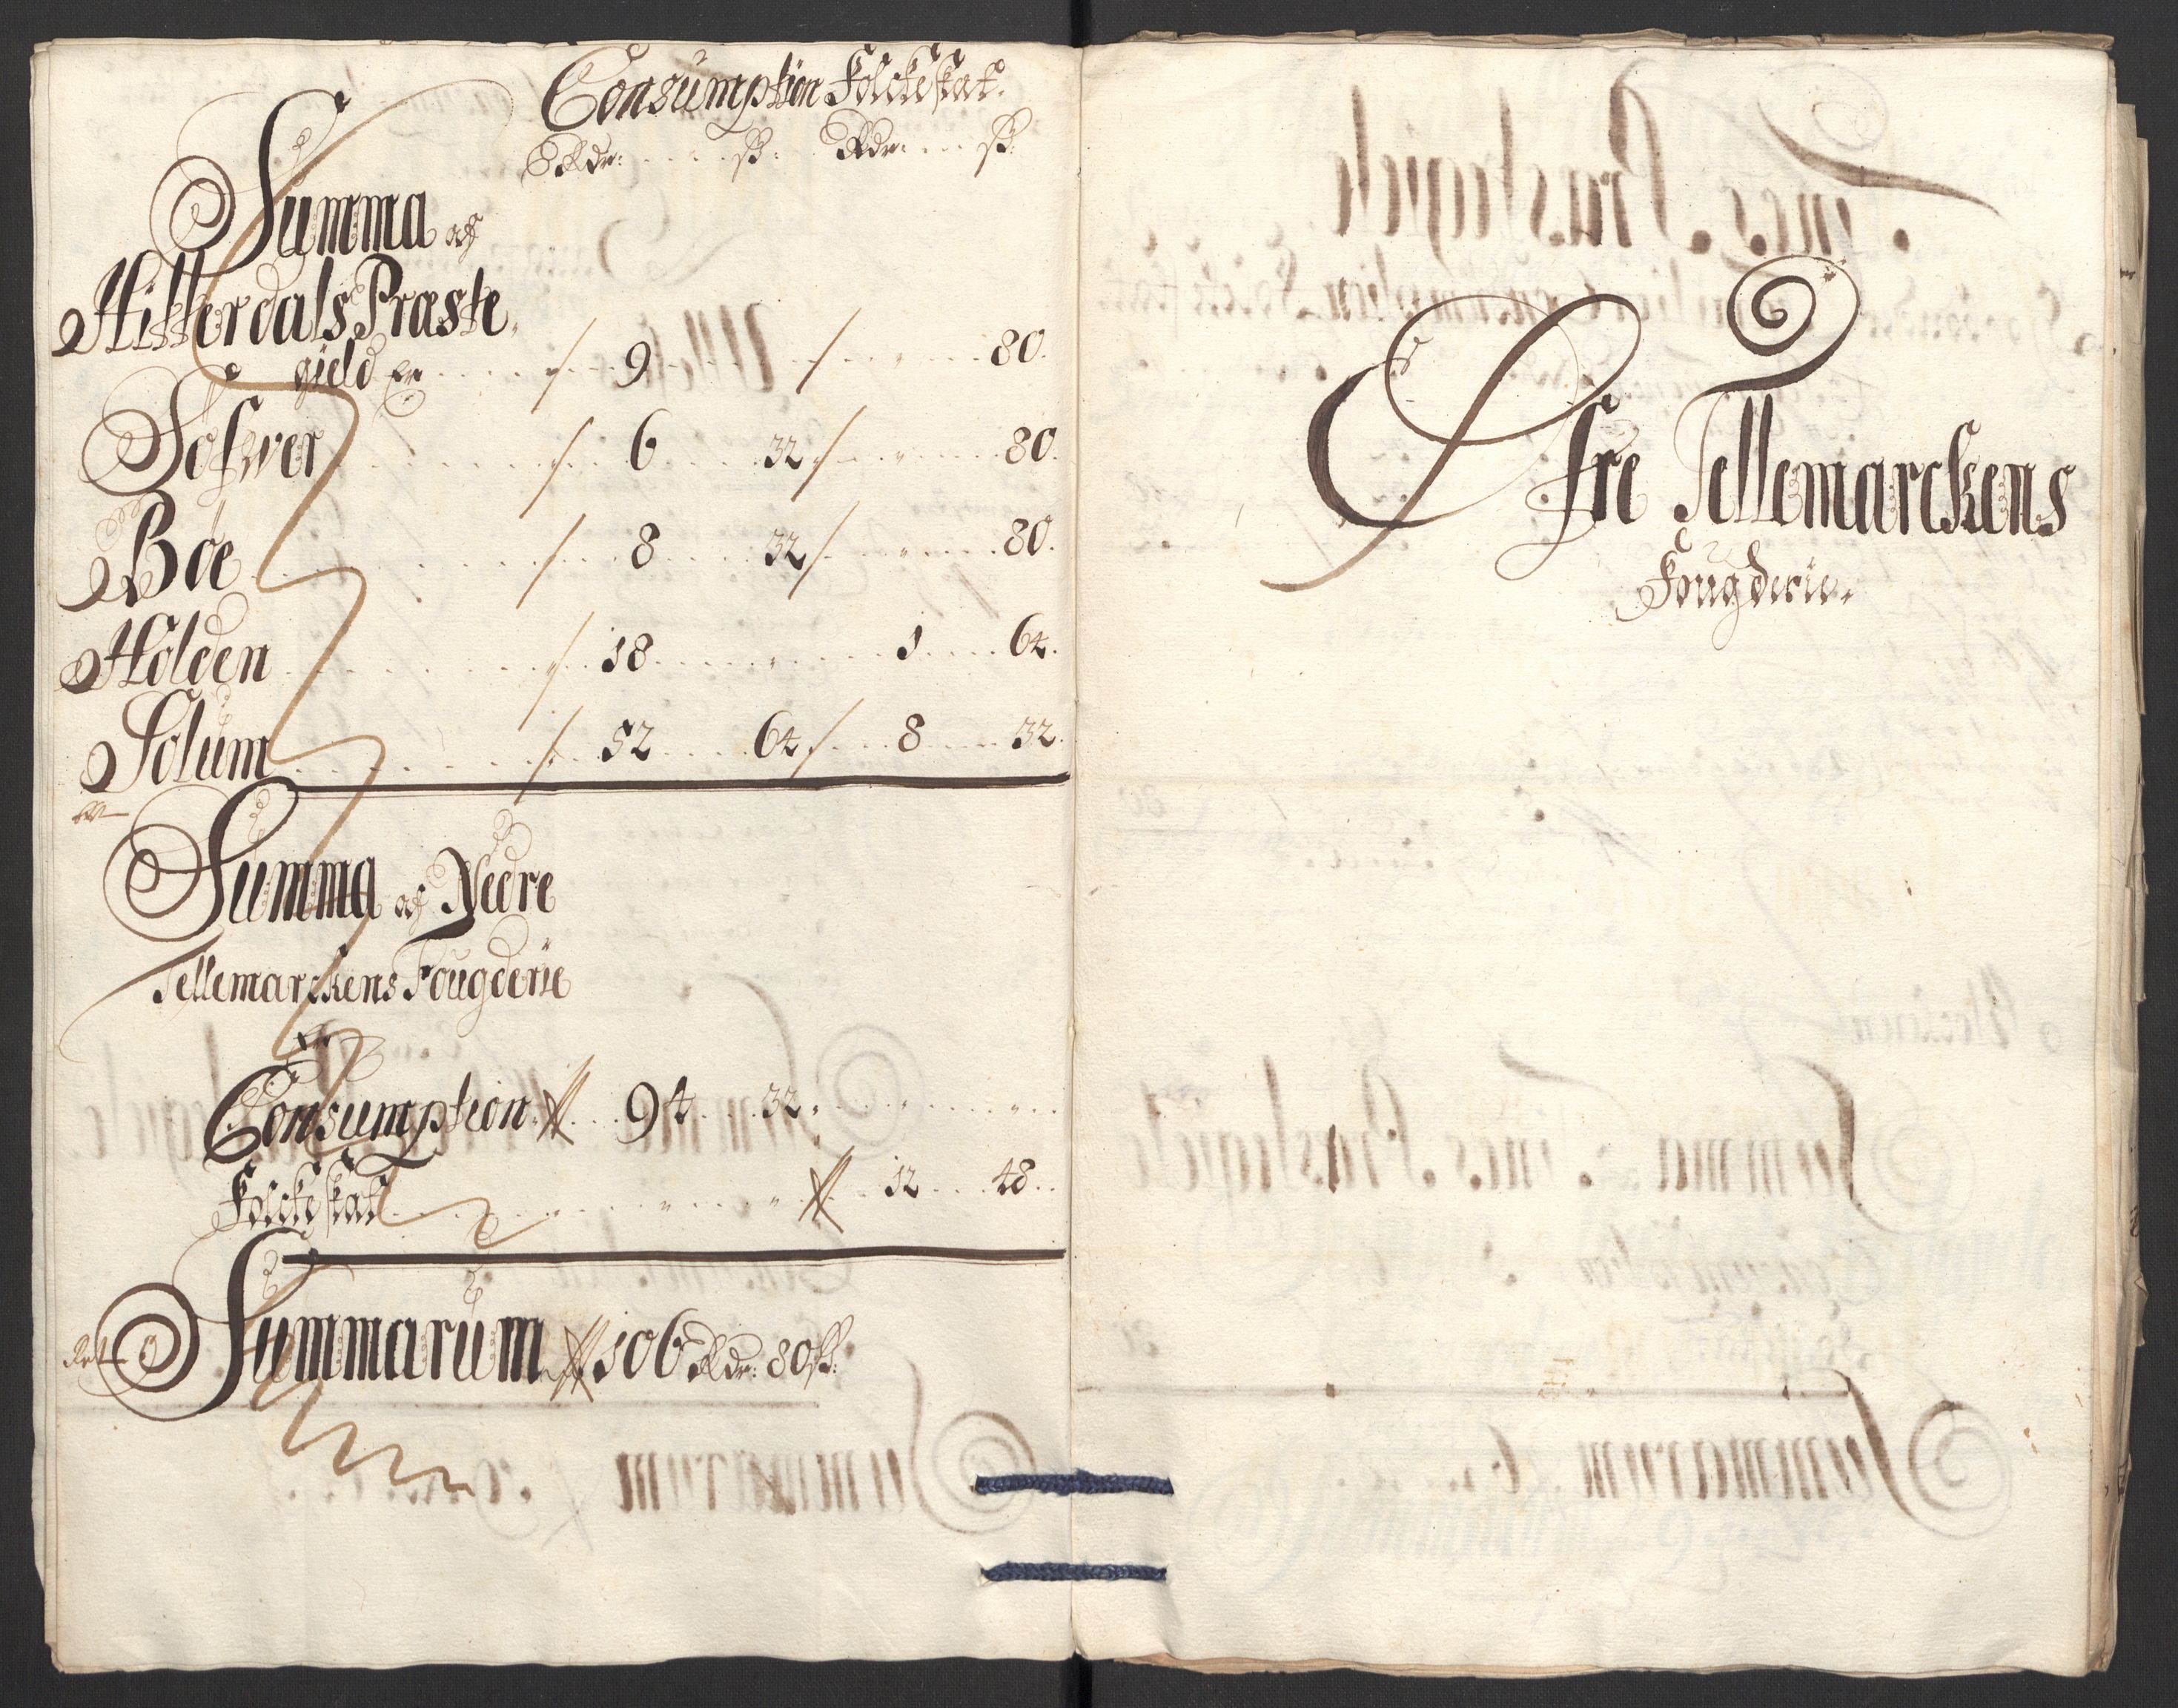 Consumption Folckeskat.
Rdr: ß: Rdr: ß:
Summa af
Hitterdals Præste-
gield Er 9 80.
Sofwer 6 32 80.
Böe 8 32 80.
Holden 18 1 64.
Solum 52 64 8 32.
Summa af Nedre
Tellemarckens Fougderie
Er
Consumption 94 32.
Folckeskat 12 48.
Summarum 106 Rdr: 80 ß:
Öfre Tellemarckens
Fougderie.